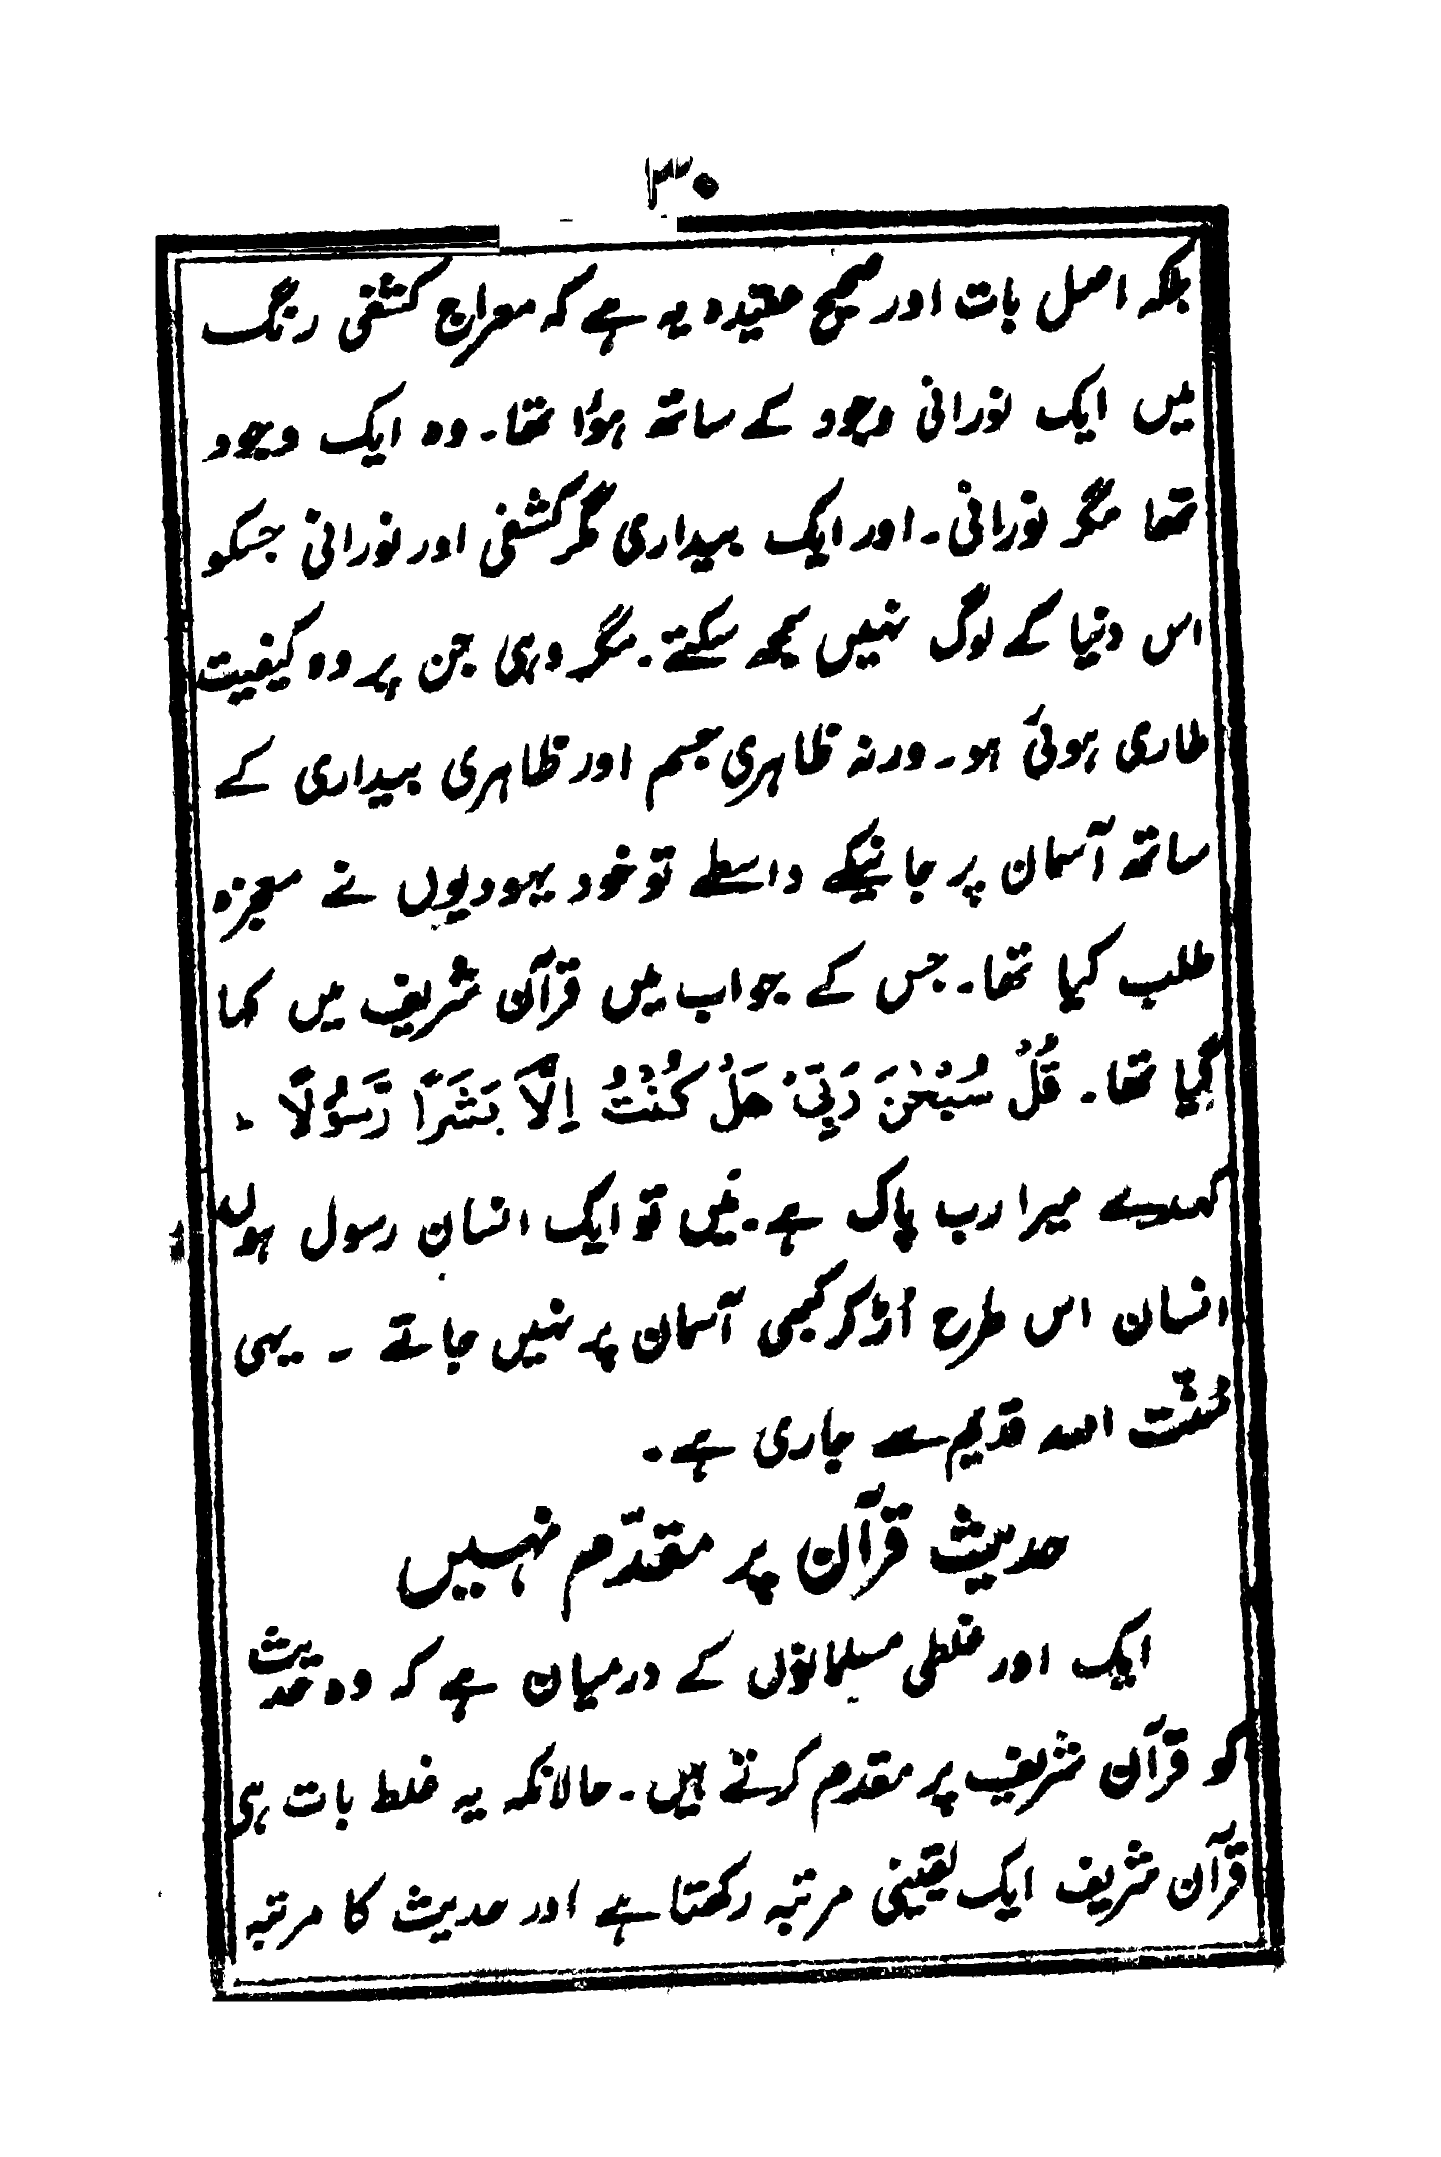 ۳۰
بلکہ اصل بات اور صحیح عقیدہ یہ ہے کہ معراج کشفی رنگ
میں ایک نورانی وجود کے ساتھ ہوٗا تھا۔ وہ ایک وجود
تھا مگر نورانی۔ اور ایک بیداری مگر کشفی اور نورانی جسکو
اس دنیا کے لوگ نہیں سمجھ سکتے۔ مگر وہی جن پر وہ کیفیت
طاری ہوئی ہو۔ ورنہ ظاہری جسم اور ظاہری بیداری کے
ساتھ آسمان پر جانیکے واسطے تو خود یہودیوں نے معجزہ
طلب کیا تھا۔ جس کے جواب میں قرآن شریف میں کہا
گیا تھا۔ قُلْ سُبْحٰنَ رَبِّیْ هَلْ كُنْتُ اِلَّا بَشَرًا رَّسُوْلًا ۔
کہدے میرا رب پاک ہے۔ مَیں تو ایک انسان رسول ہوں
انسان اس طرح اُڑ کر کبھی آسمان پر نہیں جاتے ۔ یہی
سُنّت اللہ قدیم سے جاری ہے۔
حدیث قرآن پر مقدّم نہیں
ایک اور غلطی مسلمانوں کے درمیان ہے کہ وہ حدیث
کو قرآن شریف پر مقدم کرتے ہیں۔ حالانکہ یہ غلط بات ہی
قرآن شریف ایک یقینی مرتبہ رکھتا ہے اور حدیث کا مرتبہ